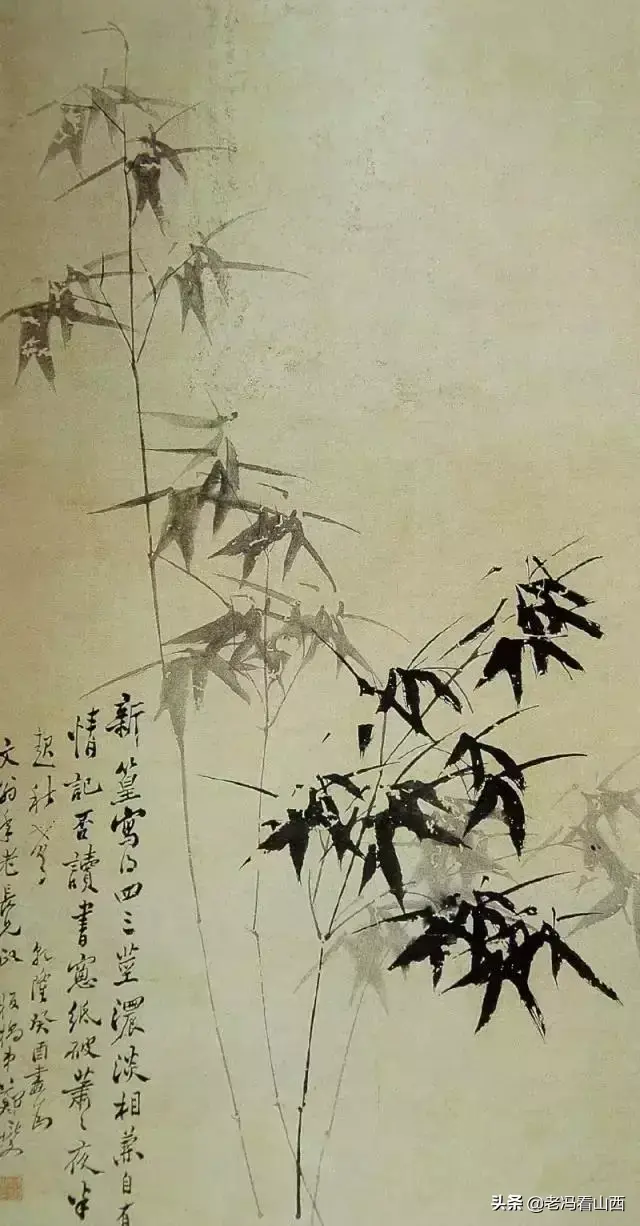 新篁寫得四三莖濃淡相兼自有
情記否讀書窻紙破蕭〻夜半
起秋聲 乾隆癸酉畫為
文翁年老長兄 板橋弟鄭燮
头条 @老冯看山西